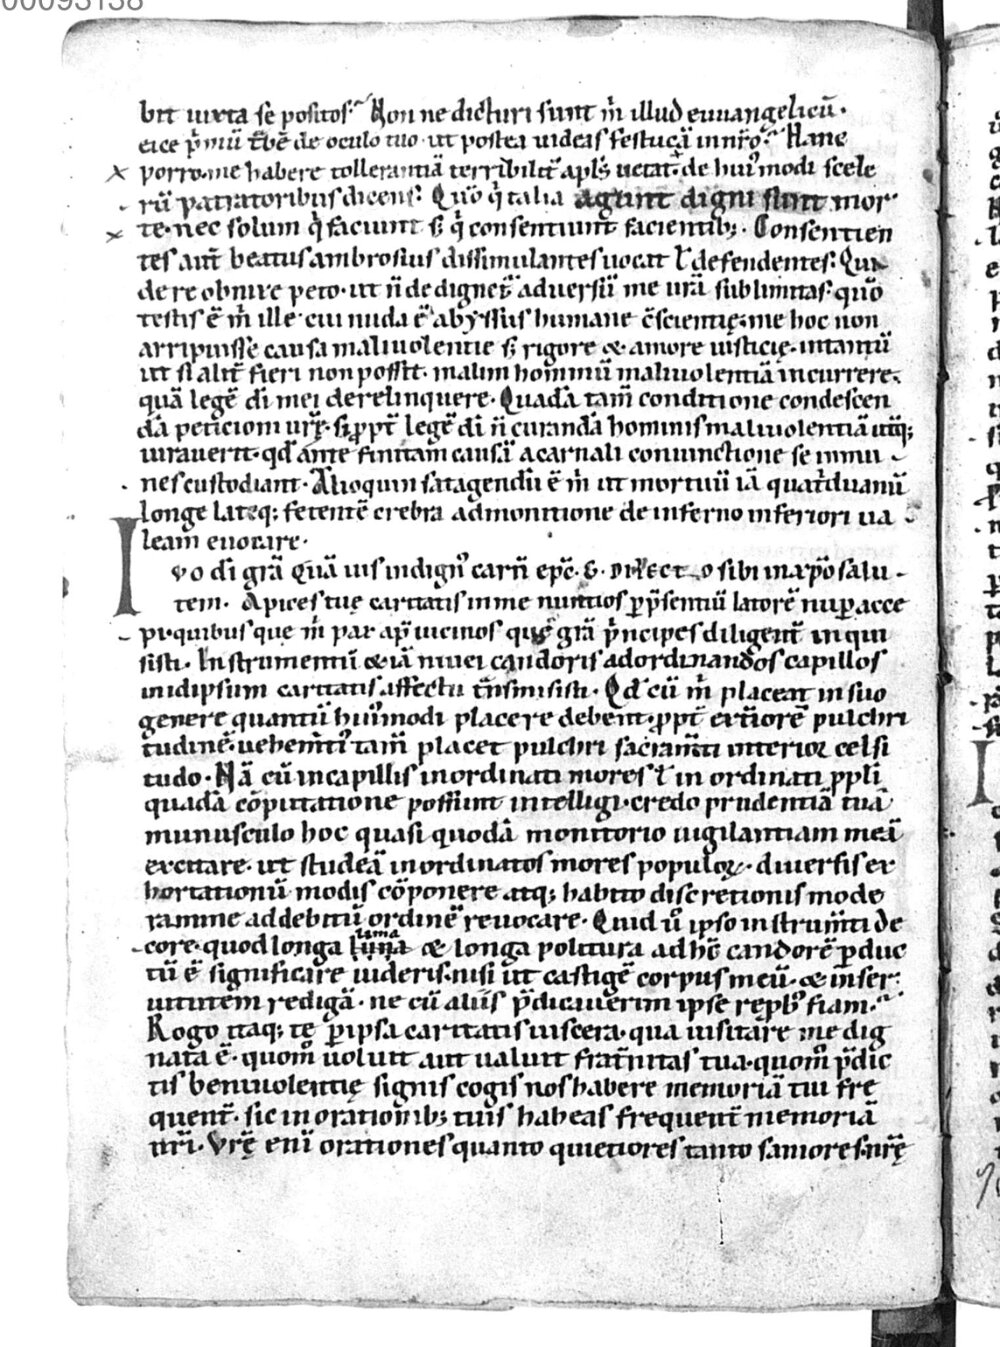 00093138
bit iuxta se positos? Non ne dicturi sunt m̄ illud euuangelicū·
eice p̄mū t̄bē de oculo tuo· ut postea uideas festucā in nr̄o? Hanc
porro me habere tollerantiā terribilit̄ apl̄s uetat· de hui᾽modi scele
rū patratoribus dicens: Qūo q̄ talia agunt digni sunt mor
te· nec solum q̄ faciunt s; q̄ consentiunt facientib;· Consentien
tes aut̄ beatus ambrosius dissimulantes uocat ł defendentes: Qua
de re obnixe peto· ut n̄ dedignet̄ aduersū me urā sublimitas· quō
testis ē m̄ ille· cui nuda ē abyssus humane c̄scientię· me hoc non
arripuisse causa maliuolentie s; rigore & amore iusticię· intantū
ut si alit̄ fieri non possit· malim hominū maliuolentiā incurrere·
quā legē dī mei derelinquere· Quadā tam̄ conditione condescen
dā peticioni urę̄· si ꝓpt̄ legē dī n̄ curandā hominis maliuolentiā utīq;
iurauerit· qd̄ ante finitam causā a carnali coniunctione se immu
nes custodiant· Alioquin satagendū ē m̄ ut mortuū iā quatͥduanū
longe lateq; fetentē crebra admonitione de inferno inferiori ua
leam euocare·
Iuo dī grā quā uis indign᾽ carn̄ ep̄c· G· DILECTO sibi in xp̄o salu
tem· Apices tuę caritatis in me nuntios ꝑ p̄sentiū latorē nuper acce
pi· quibus que m̄ par ap̄ uicinos quę grā p̄ncipes diligent̄ inqui
sisti· Instrumentū & iā niuei candoris ad ordinandos capillos
in idipsum caritatis affectu t̄nsmisisti· Qd̄ cū m̄ placeat in suo
genere quantū hui᾽modi placere debent· ꝓpt̄ ext̄iorē pulchri
tudinē· uehem̄ti᾽ tam̄ placet pulchri sacram̄ti interior celsi
tudo· Nā cū in capillis inordinati mores ł inordinati ppl̄i
quadā cōputatione possunt intelligi· credo prudentiā tuā
munusculo hoc quasi quodā monitorio uigilantiam meā
excitare· ut studeā inordinatos mores populoꝝ· diuersis ex
hortationū modis cōponere atq; habito discretionis mode
ramine ad debitū ordinē reuocare· Quid ū ipso instrum̄ti de
core· quod longa lima & longa politura ad hē candorē ꝓduc
tū ē significare uideris· nisi ut castigē corpus meū· & in ser
uitutem redigā· ne cū aliis p̄dicauerim ipse rep̄b᾽ fiam?
Rogo itaq; te ꝑ ipsa caritatis uiscera· qua uisitare me dig
nata ē· quom̄ uoluit aut ualuit frat̄nitas tua· quom̄ p̄dic
tis beniuolentię signis cogis nos habere memoriā tui fre
quent̄· sic in orationib; tuis habeas frequent̄ memoriā
nr̄i· Vrę̄ enī orationes quanto quietiores tanto saniores· nrę̄